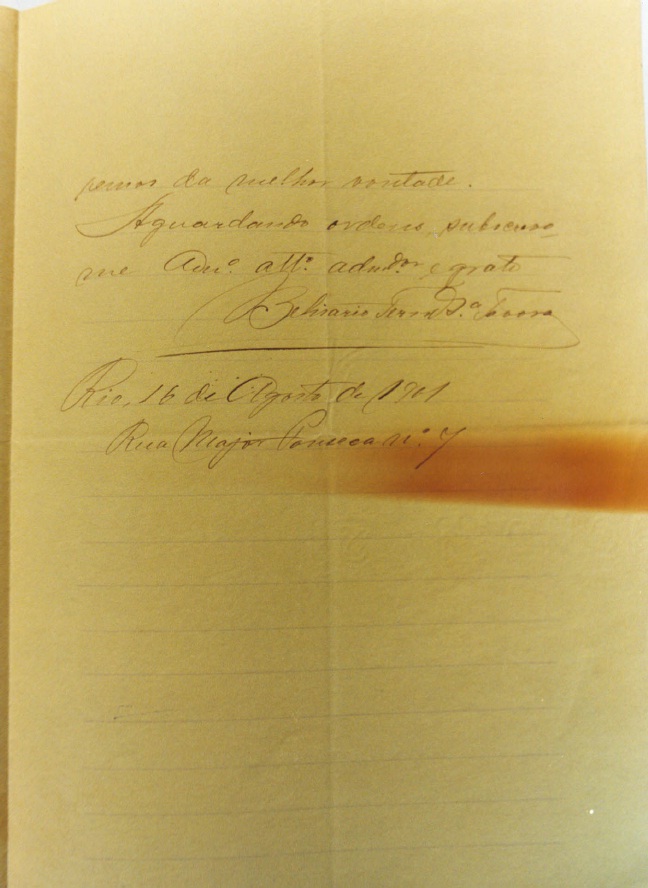 remos da melhor vontade.
Aguardando ordens, subscrevo
me Am.º att.º adm.dor e grato
Belisario Fern.des S.ª Tavora
Rio, 16 de Agosto de 1901
Rua Major Fonseca n.º 7